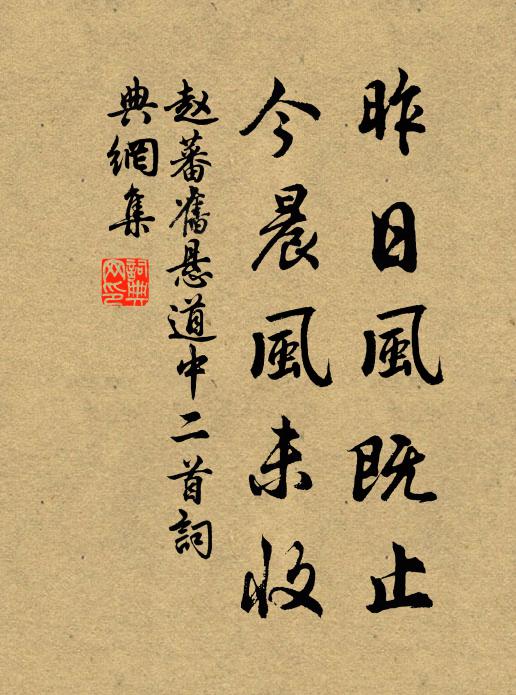 昨日風既止
今晨風未收
赵蕃舊悬道中二首詞
典網集
詞典
网印